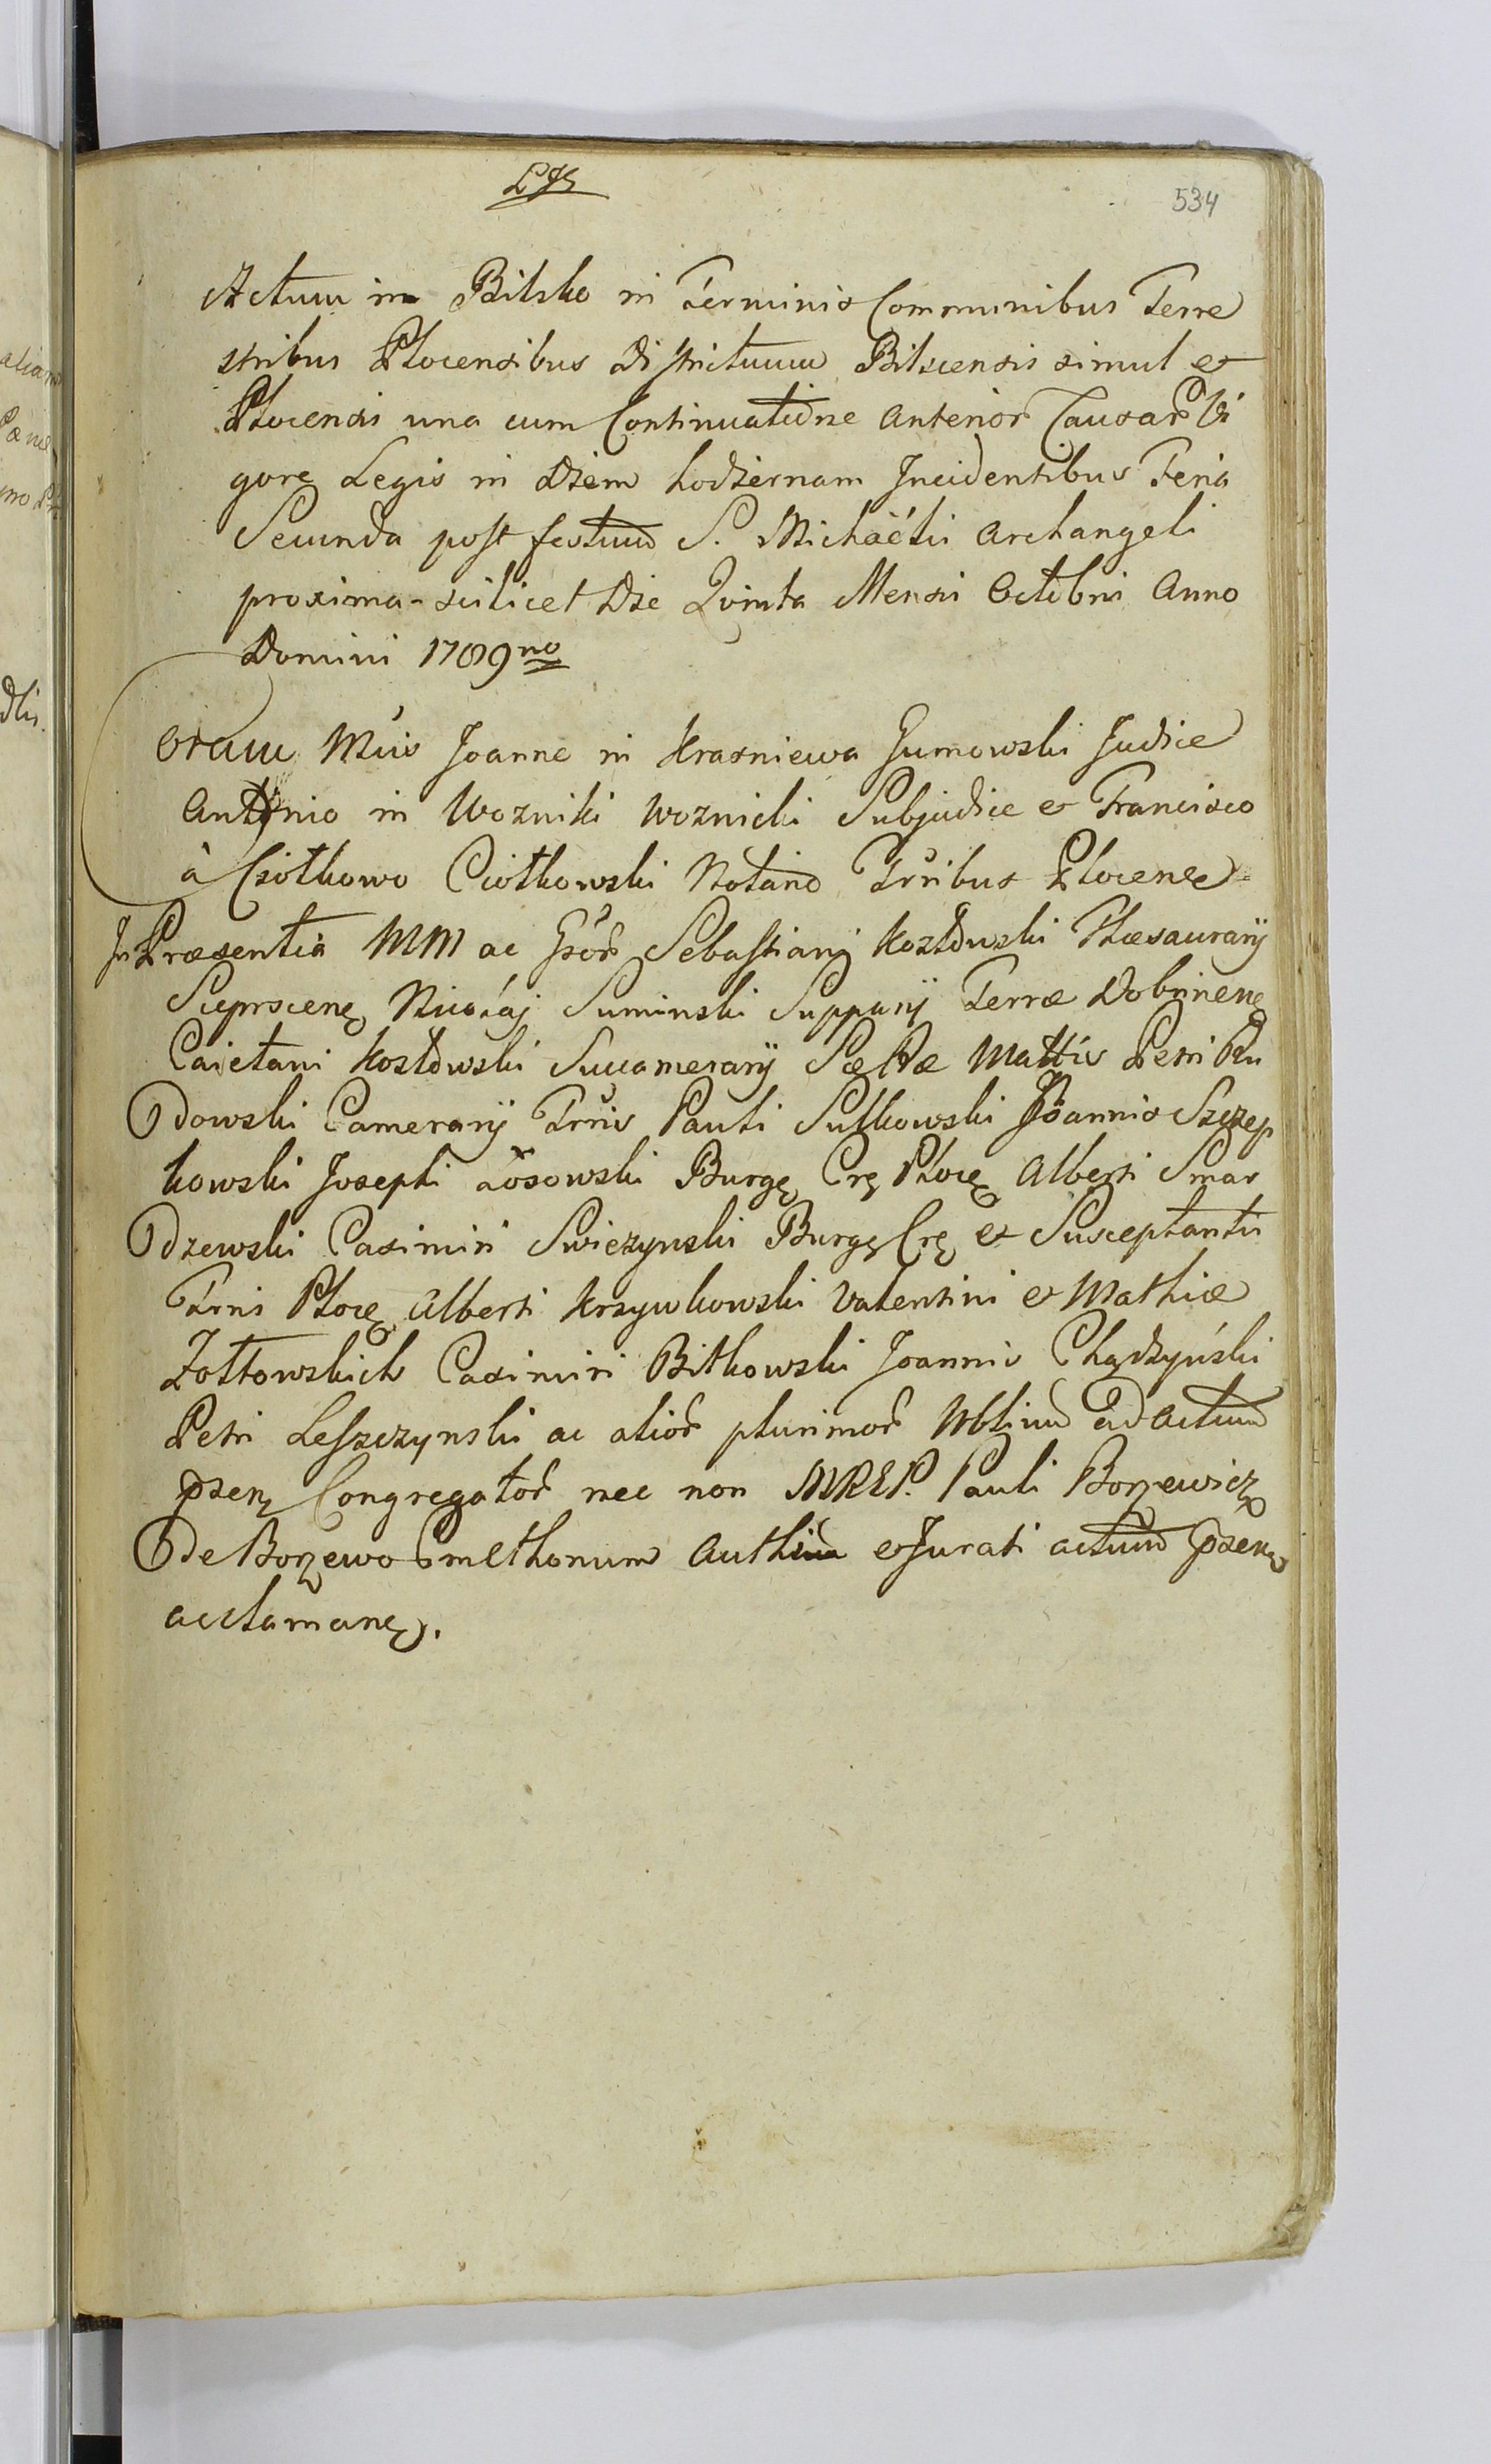 534
Actum in Bilsko in Terminis Communibus Terre
stribus Plocensibus Districtuum Bilscensis simul et
Plocensis una cum Continuatione anterior Causar Vi
gore Legis in Diem hodiernam Incidentibus Feria
Secunda post festum S. Michaëlis Archangeli
proxima scilicet Die Quinta Mensis Octobris Anno
Domini 1789no
Coram Mcis Joanne in Krasniewa Gumowski Judice
Antonio in Wozniki Woznicki Subjudice et Francisco
à Ciółkowo Ciołkowski Notario Trribus Plocens
In Præsentia MM ac Gsor Sebastiani Kozłowski Thesaurarij
Sieprscens Nicolaj Suminski Supparij Terræ Dobrinens
Caietani Kozłowski Succamerarij Petri Ru
dowski Camerarij Trris Pauli Sulkowski Joannis Szczep
kowski Josephi Łosowski Burgs Crs Plocs Alberti Smar
dzewski Casimiri Swiezynski Burgs Crs et Susceptantis
Trris Plocs Alberti Krzywkowski Valentini et Mathiæ
Zołtowskich Casimiri Bilkowski Joannis Chądzyński
Petri Leszczynski ac alior plurimor Nblium ad actum
pzens Congregator nec non Pauli Borzewicz
De Borzewo et Jurati actum pzens
acclamans.